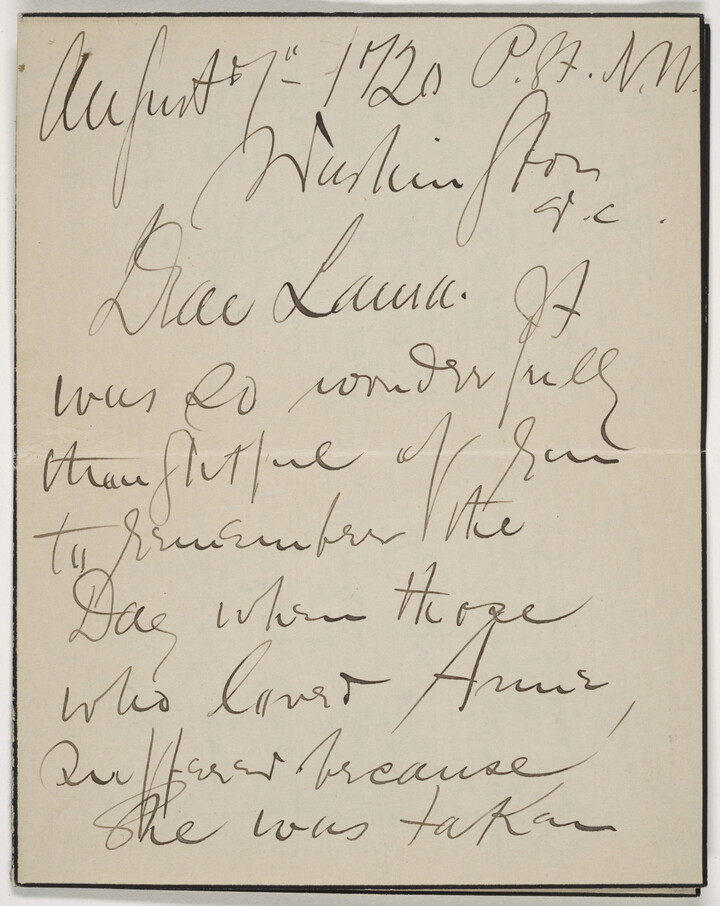 August 7" - 1720 P. St. N.W.
Washington
D.C.
Dear Laura. It
was so wonderfully
thoughtful of you
to remember the
Day when those
who loved Anne,
suffered because
She was taken